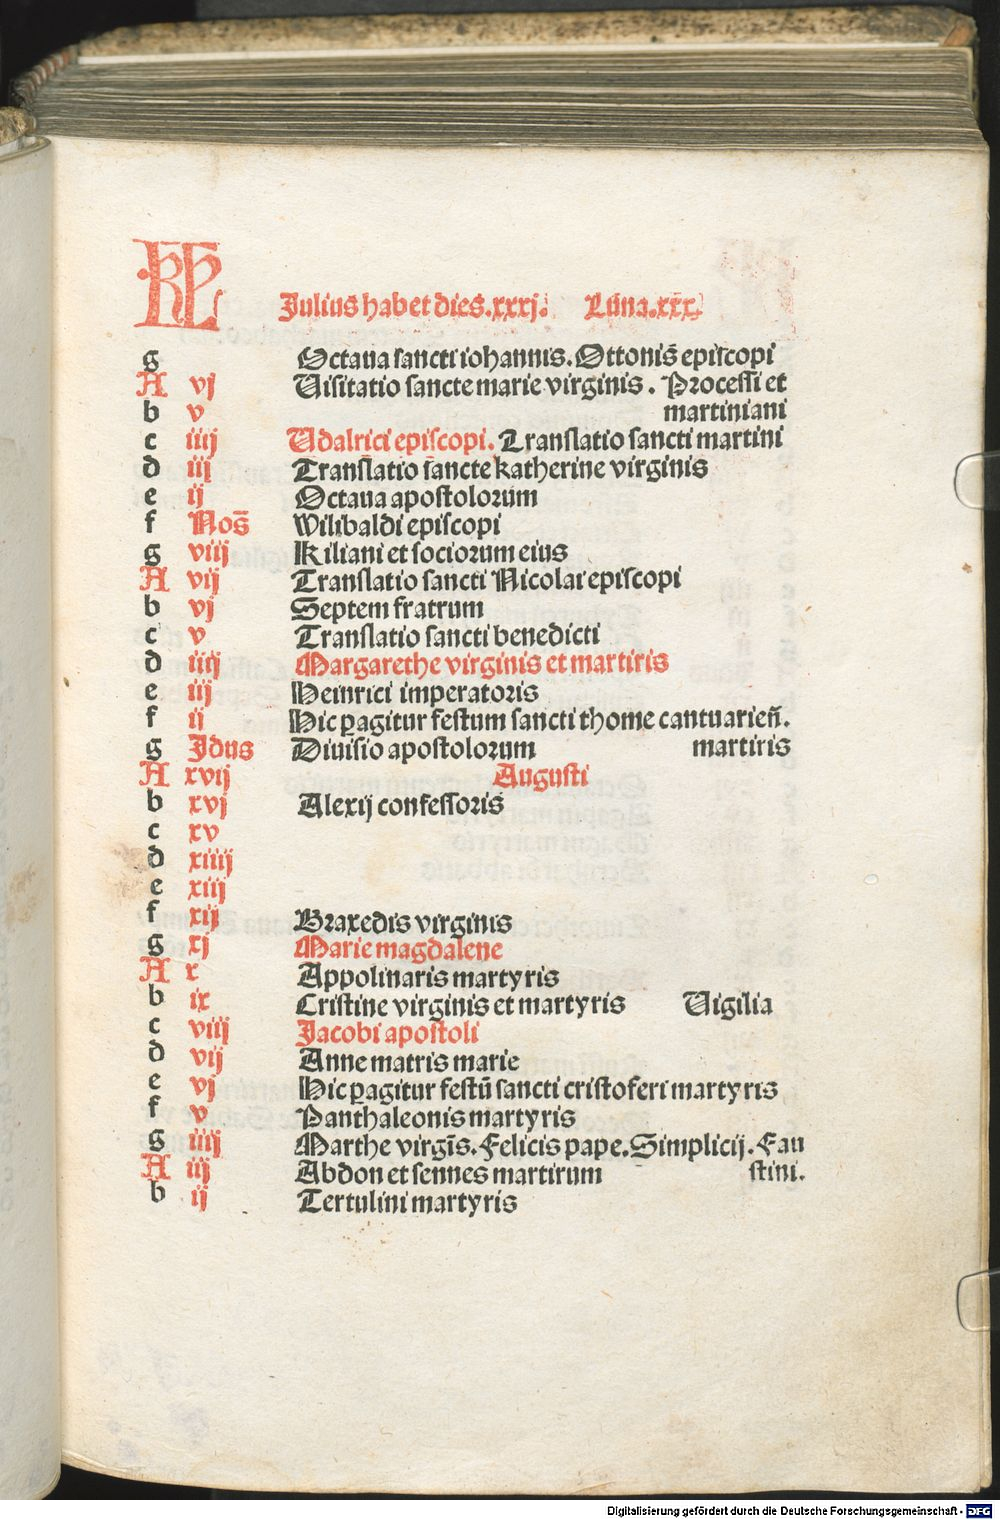 KL Julius habet dies.xxxj. Luna.xxx.
g Octaua sancti iohannis. Ottonis episcopi
A vj Uisitatio sancte marie virginis. Processi et
b v martiniani
c iiij Udalrici episcopi. Translatio sancti martini
d iij Translatio sancte katherine virginis
e ij Octaua apostolorum
f Nos̄ Wilibaldi episcopi
g viij Kiliani et sociorum eius
A vij Translatio sancti Nicolai episcopi
b vj Septem fratrum
c v Translatio sancti benedicti
d iiij Margarethe virginis et martiris
e iij Heinrici imperatoris
f ij Hic ꝑagitur festum sancti thome cantuarien̄.
g Jdus Diuisio apostolorum martiris
A xvij Augusti
b xvj Alexij confessoris
c xv
d xiiij
e xiij
f xij Braxedis virginis
g xj Marie magdalene
A x Appolinaris martyris
b ix Cristine virginis et martyris Uigilia
c viij Jacobi apostoli
d vij Anne matris marie
e vj Hic ꝑagitur festū sancti cristoferi martyris
f v Panthaleonis martyris
g iiij Marthe virgīs. Felicis pape. Simplicij. Fau
A iij Abdon et sennes martirum stini.
b ij Tertulini martyris
Digitalisierung gefördert durch die Deutsche Forschungsgemeinschaft - DFG